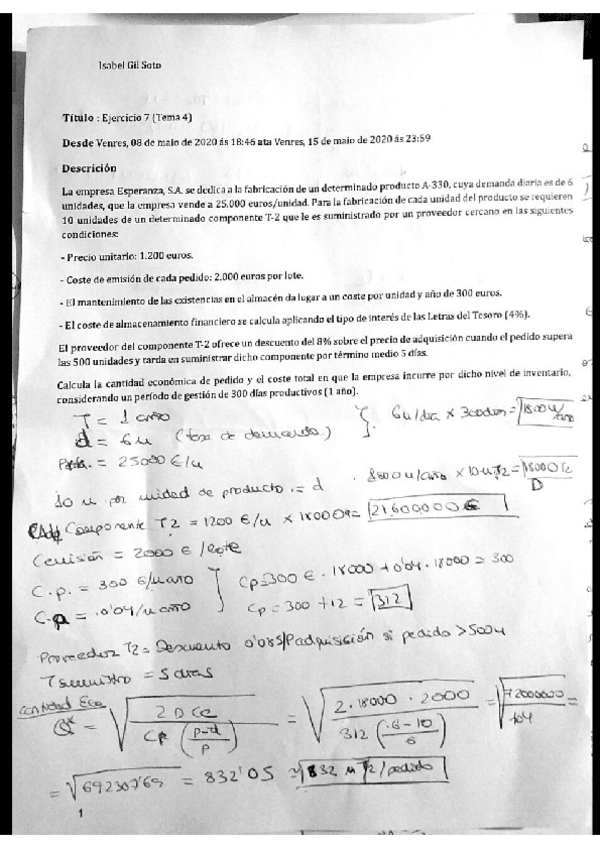 Isabel Gil Soto
Título : Ejercicio 7 (Tema 4)
Desde Venres, 08 de maio de 2020 ás 18:46 ata Venres, 15 de maio de 2020 ás 23:59
Descrición
La empresa Esperanza, S.A. se dedica a la fabricación de un determinado producto A-330, cuya demanda diaria es de 6
unidades, que la empresa vende a 25.000 euros/unidad. Para la fabricación de cada unidad del producto se requieren
10 unidades de un determinado componente T-2 que le es suministrado por un proveedor cercano en las siguientes
condiciones:
- Precio unitario: 1.200 euros.
- Coste de emisión de cada pedido: 2.000 euros por lote.
- El mantenimiento de las existencias en el almacén da lugar a un coste por unidad y año de 300 euros.
- El coste de almacenamiento financiero se calcula aplicando el tipo de interés de las Letras del Tesoro (4%).
El proveedor del componente T-2 ofrece un descuento del 8% sobre el precio de adquisición cuando el pedido supera
las 500 unidades y tarda en suministrar dicho componente por término medio 5 días.
Calcula la cantidad económica de pedido y el coste total en que la empresa incurre por dicho nivel de inventario,
considerando un período de gestión de 300 días productivos (1 año).
T = 1 año
d = 6 u (tasa de demanda) } 6u/día × 300días = 1800 u/año
= 25000 €/u
10 u por unidad de producto = d · 1800 u/año × 10 u T2 = 18000 T2
D
Componente T2 = 1200 €/u × 18000 = 21.600.000 €
Cemisión = 2000 € /lote
C.p. = 300 €/u año } Cp = 300 € · 18000 + 0'04 · 18000 = 300
= 0'04/u año Cp = 300 + 12 = 312
Proveedor T2 = Descuento s/Padquisición si pedido > 500 u
T suministro = 5 días
Cantidad Eco
Q* = √ 2 D Ce / Cp (p-d / p) = √ 2 · 18000 · 2000 / 312 (6-10 / 6) = √ 72000000 / 104 =
= √ 692307'69 = 832'05 ≈ 832 u T2/pedido
1